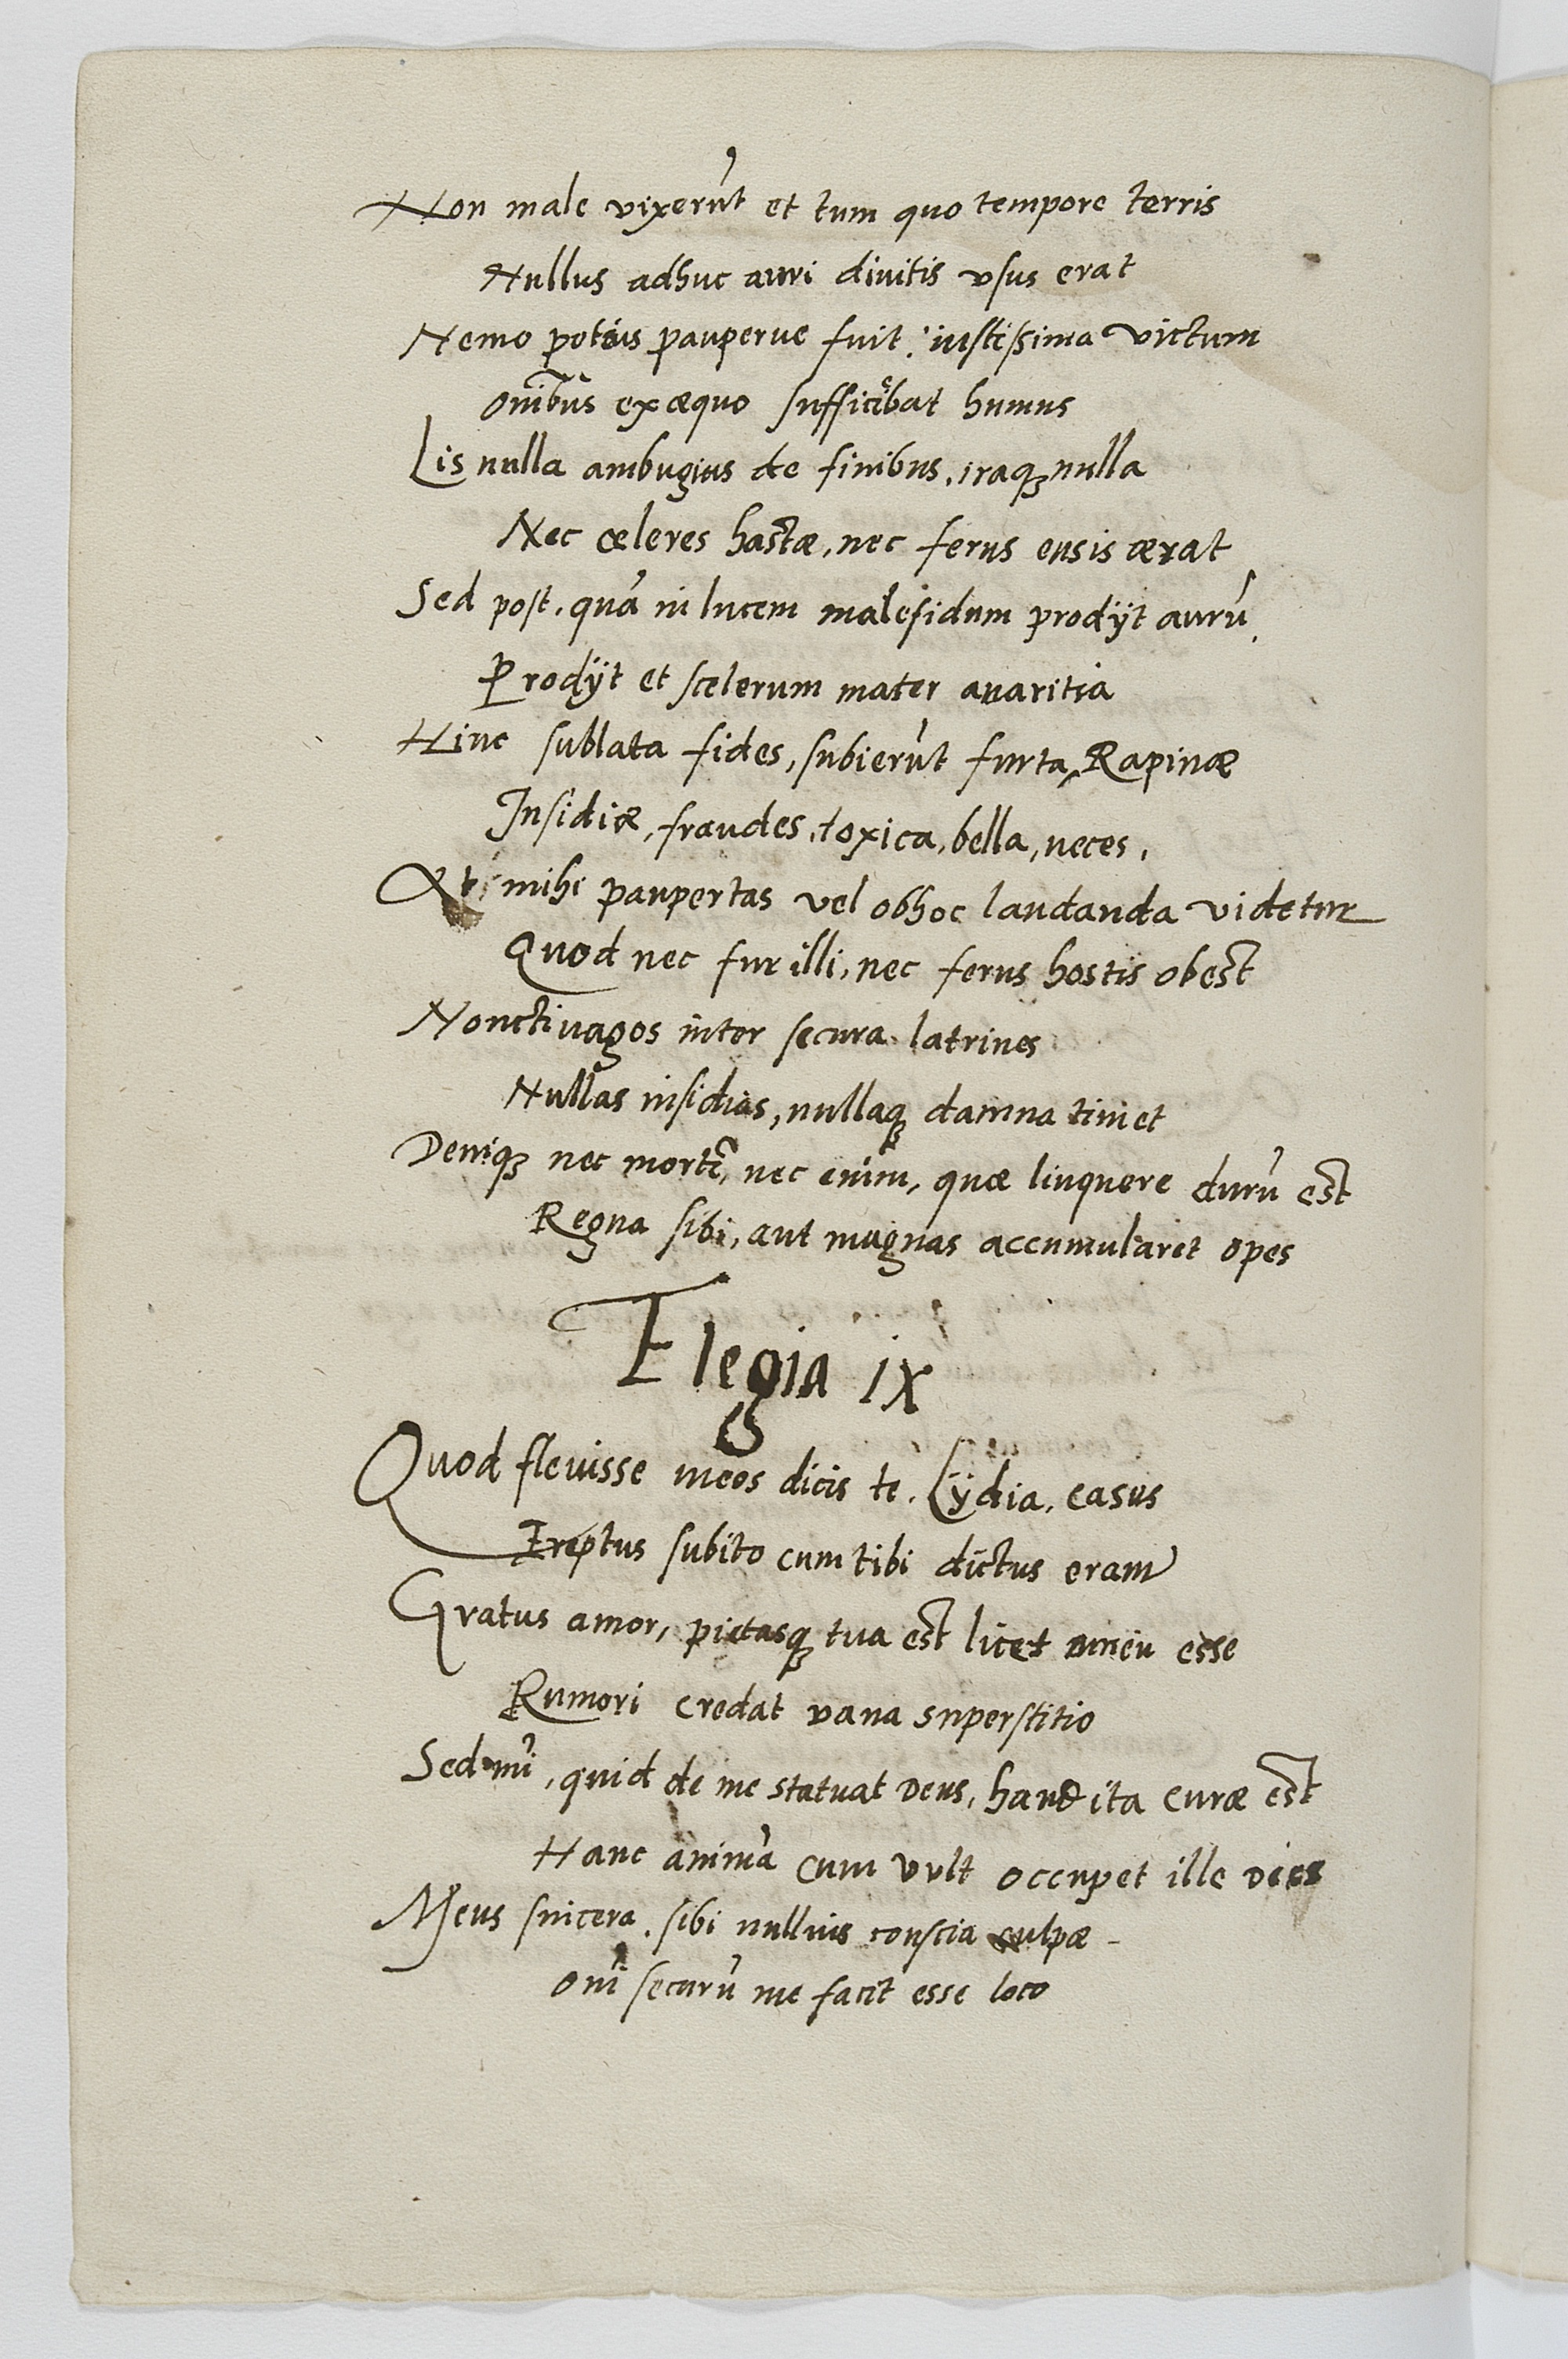 Non male vixerūt et tum quo tempore terris
Nullus adhuc auri diuitis vsus erat
Nemo potius pauperue fuit. iustißima victum
Om̄ibus exæquo sufficiebat humus
Lis nulla ambugius de finibus, iraqꝫ nulla
Nec celeres hastæ, nec ferus ensis ærat
Sed post, quā in lucem malefidum prodÿt aurū,
Prodÿt et scelerum mater auaritia
Hinc sublata fides, subierūt furta, Rapinæ
Insidiæ, fraudes, toxica, bella, neces,
At mihi paupertas vel obhoc laudanda videtur
Quod nec fur illi, nec ferus hostis obest
Nonctiuagos inter secura latrines
Nullas insidias, nullaqꝫ damna timet
Deniqꝫ nec mortē, nec enim, quæ linquere durū est
Regna sibi, aut magnas accumularet opes
Elegia ix
Quod fleuisse meos dicis te, Lÿdia, casus
Ereptus subito cum tibi dictus eram
Gratus amor, pietasqꝫ tua est licet esse
Rumori credat vana superstitio
Sed mī, quid de me statuat Deus, haud ita curæ est
Hanc animā cum vult occupet ille dies
Mens sincera, sibi nullius conscia culpæ
Om̄i securū me facit esse loco